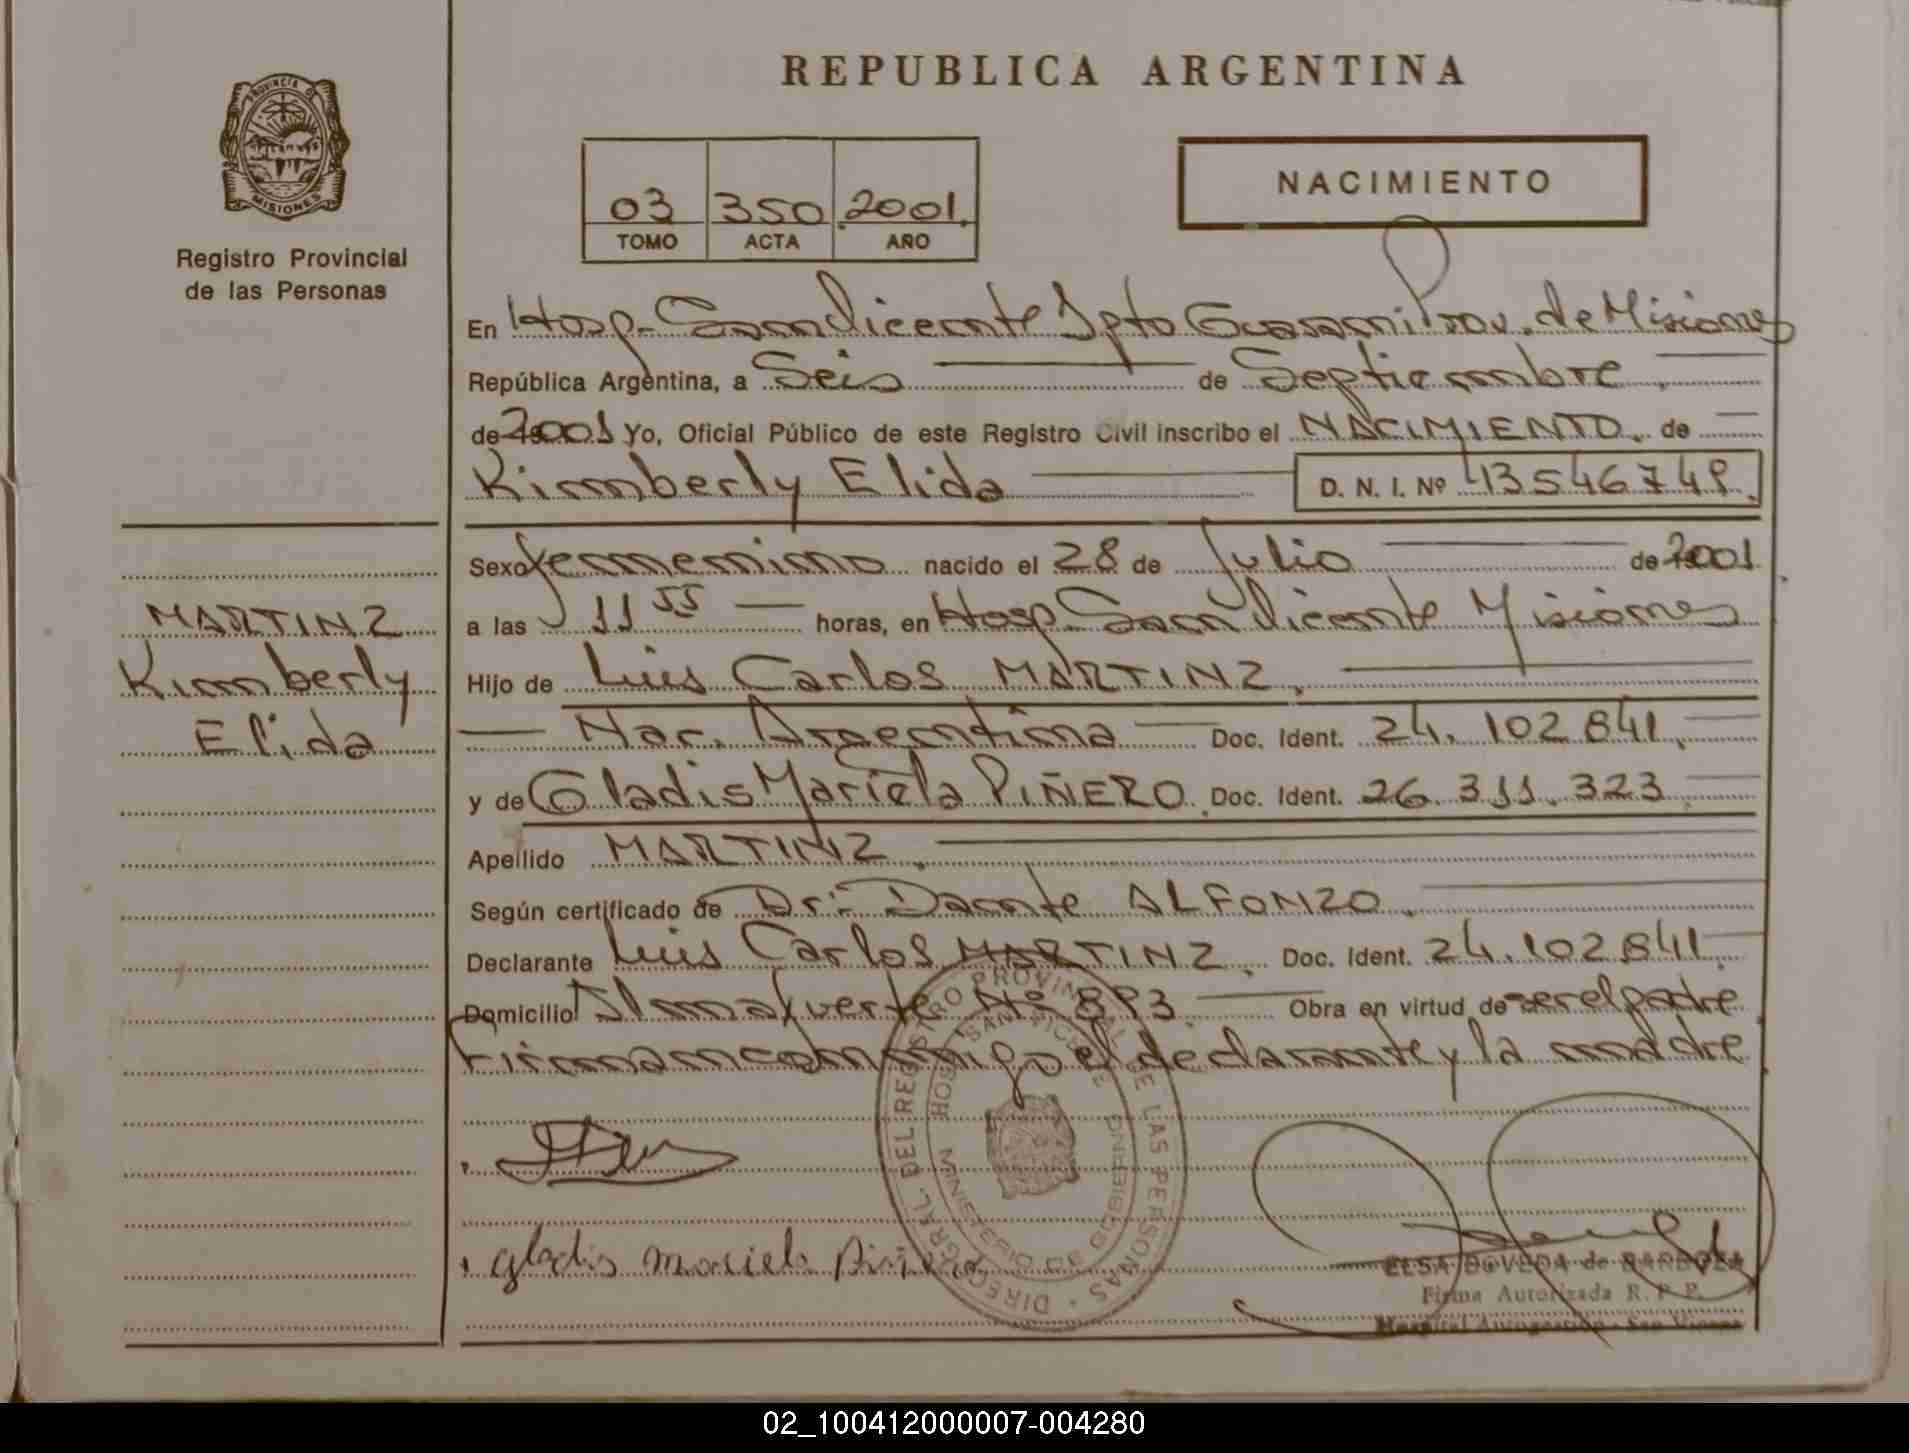 REPUBLICA ARGENTINA
PROVINCIA DE
MISIONES
Registro Provincial
de las Personas
03 350 2001
TOMO ACTA AÑO
NACIMIENTO
En Hosp. San Vicente Dpto Guaraní Prov. de Misiones
República Argentina, a Seis de Septiembre
de 2001 Yo, Oficial Público de este Registro Civil inscribo el NACIMIENTO de
Kimberly Elida D. N. I. Nº 43546748
Sexo femenino nacido el 28 de Julio de 2001
a las 11 55 horas, en Hosp San Vicente Misiones
MARTINZ
Kimberly
Elida
Hijo de Luis Carlos MARTINZ.
Nac. Argentina Doc. Ident. 24.102.841.
y de Gladis Mariela PIÑERO. Doc. Ident. 26.311.323
Apellido MARTINZ.
Según certificado de Dr: Dante ALFONZO.
Declarante Luis Carlos MARTINZ. Doc. Ident. 24.102.841.
Domicilio Almafuerte Nº 893 Obra en virtud de ser el padre
Firman conmigo el declarante y la madre
DIREC. GRAL. DEL REGISTRO PROVINCIAL DE LAS PERSONAS
HOSP. SAN VICENTE
MINISTERIO DE GOBIERNO
Gladis Mariela Piñero
ELSA BOVEDA de BARBOZA
Firma Autorizada R. P. P.
Hospital Autogestión - San Vicente
02_100412000007-004280